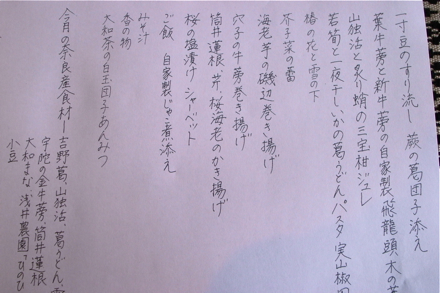 一寸豆のすり流し 蕨の葛団子添え
葉牛蒡と新牛蒡の自家製飛龍頭 木の芽
山独活と炙り蛸の三宝柑ジュレ
若筍と一夜干しいかの葛うどんパスタ 実山椒
椿の花と雪の下
芥子菜の蕾
海老芋の磯辺巻き揚げ
穴子の牛蒡巻き揚げ
筒井蓮根、芹、桜海老のかき揚げ
桜の塩漬け シャーベット
ご飯 自家製じゃこ煮添え
みそ汁
香の物
大和茶の白玉団子あんみつ
今月の奈良産食材ー吉野葛、山独活、葛うどん、
宇陀の金牛蒡、筒井蓮根
大和まな、浅井農園「ひのひ
小豆